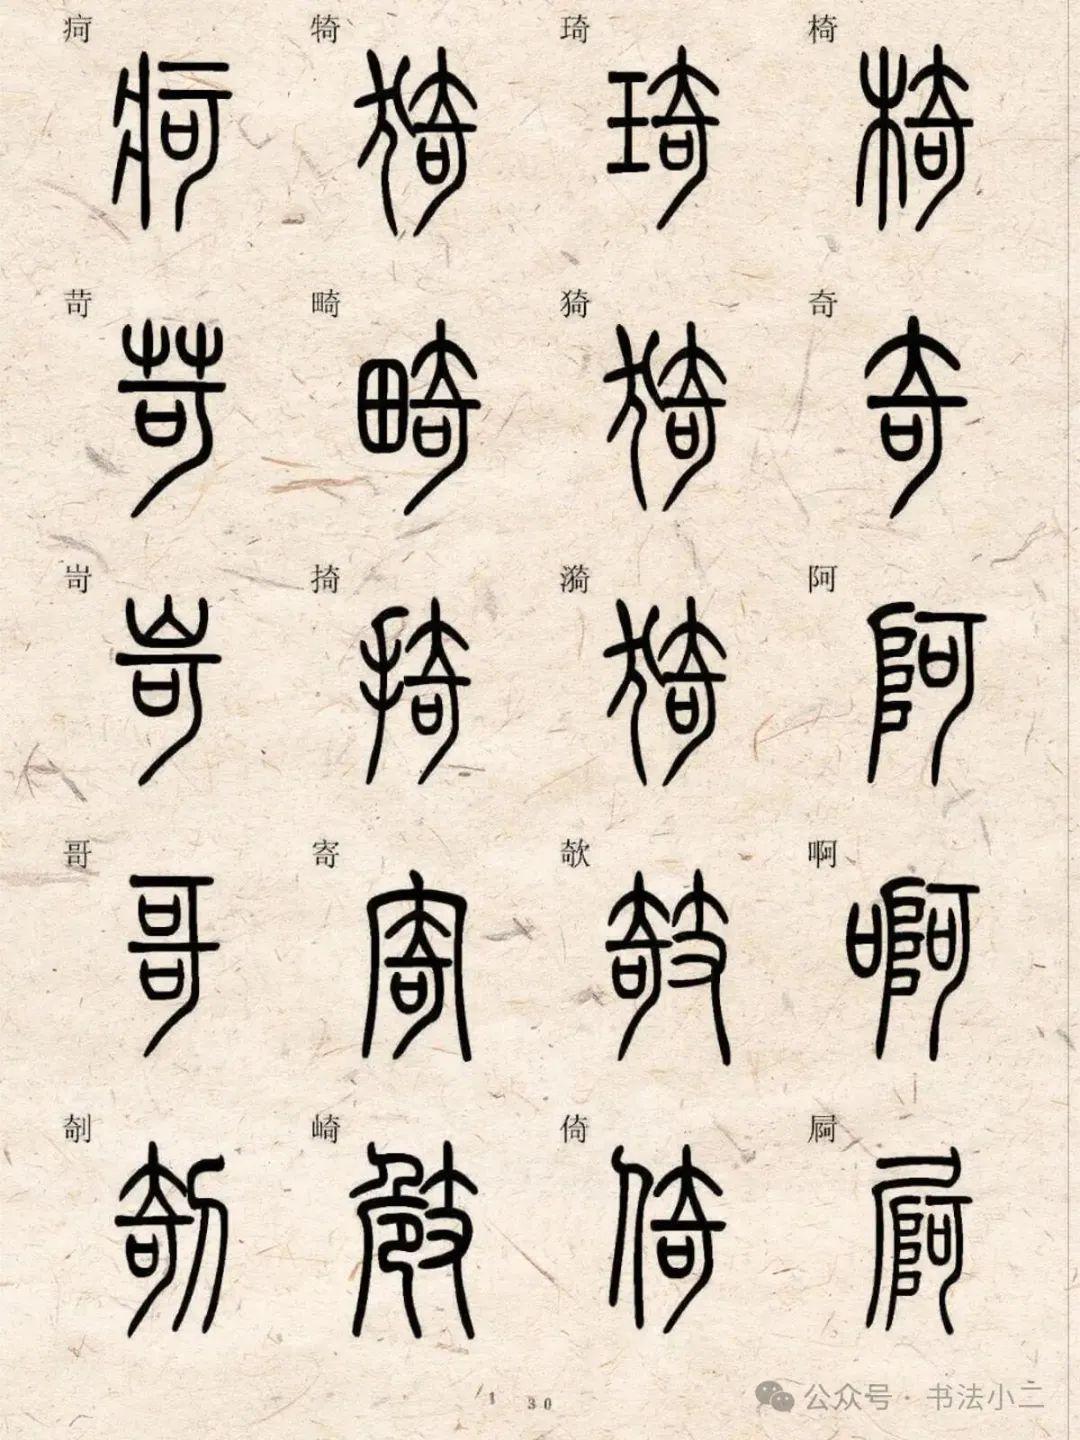 疴 犄 琦 椅
苛 畸 猗 奇
岢 掎 漪 阿
哥 寄 欹 啊
剞 崎 倚 屙
30
公众号·书法小二